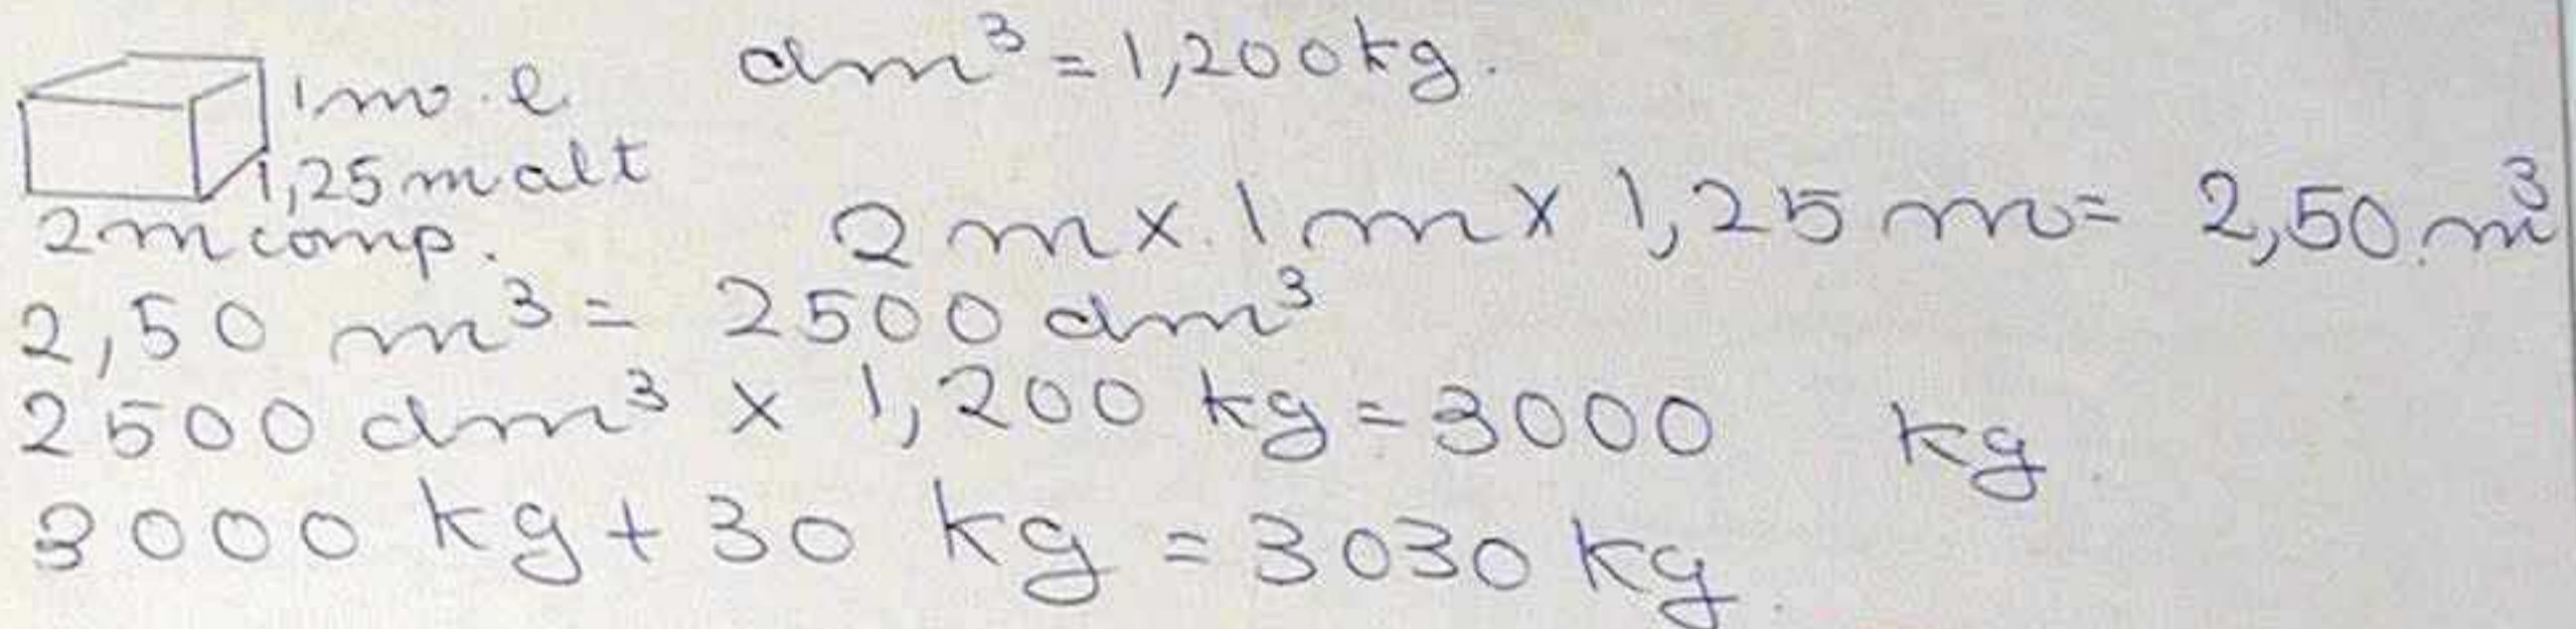 1m. l. dm³ = 1,200 kg.
1,25 m alt
2 m comp. 2 m x 1 m x 1,25 m = 2,50 m³
2,50 m³ = 2500 dm³
2500 dm³ x 1,200 kg = 3000 kg.
3000 kg + 30 kg = 3030 kg.